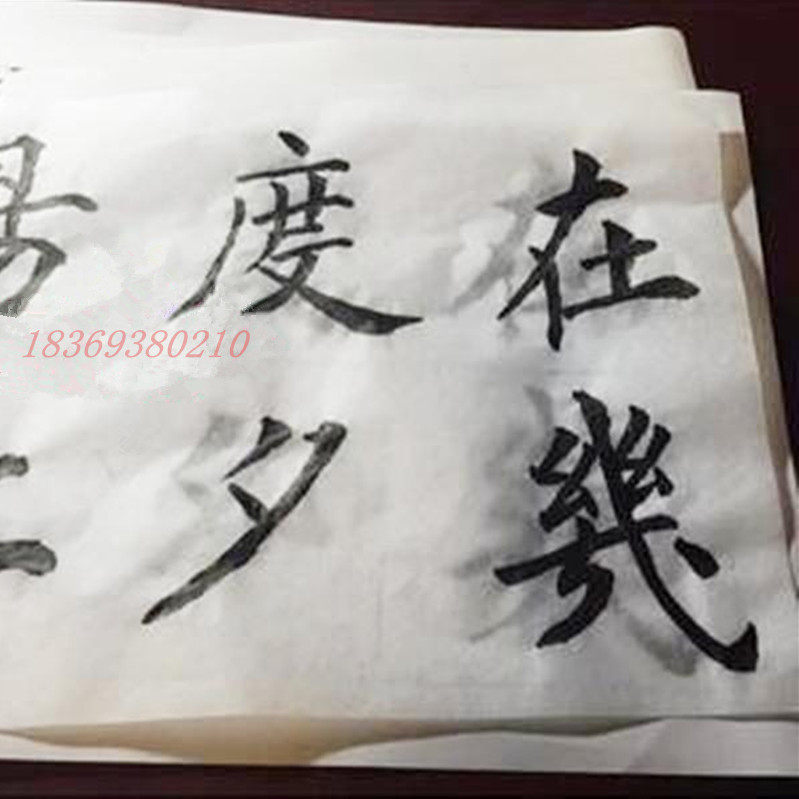 在幾
度夕
18369380210